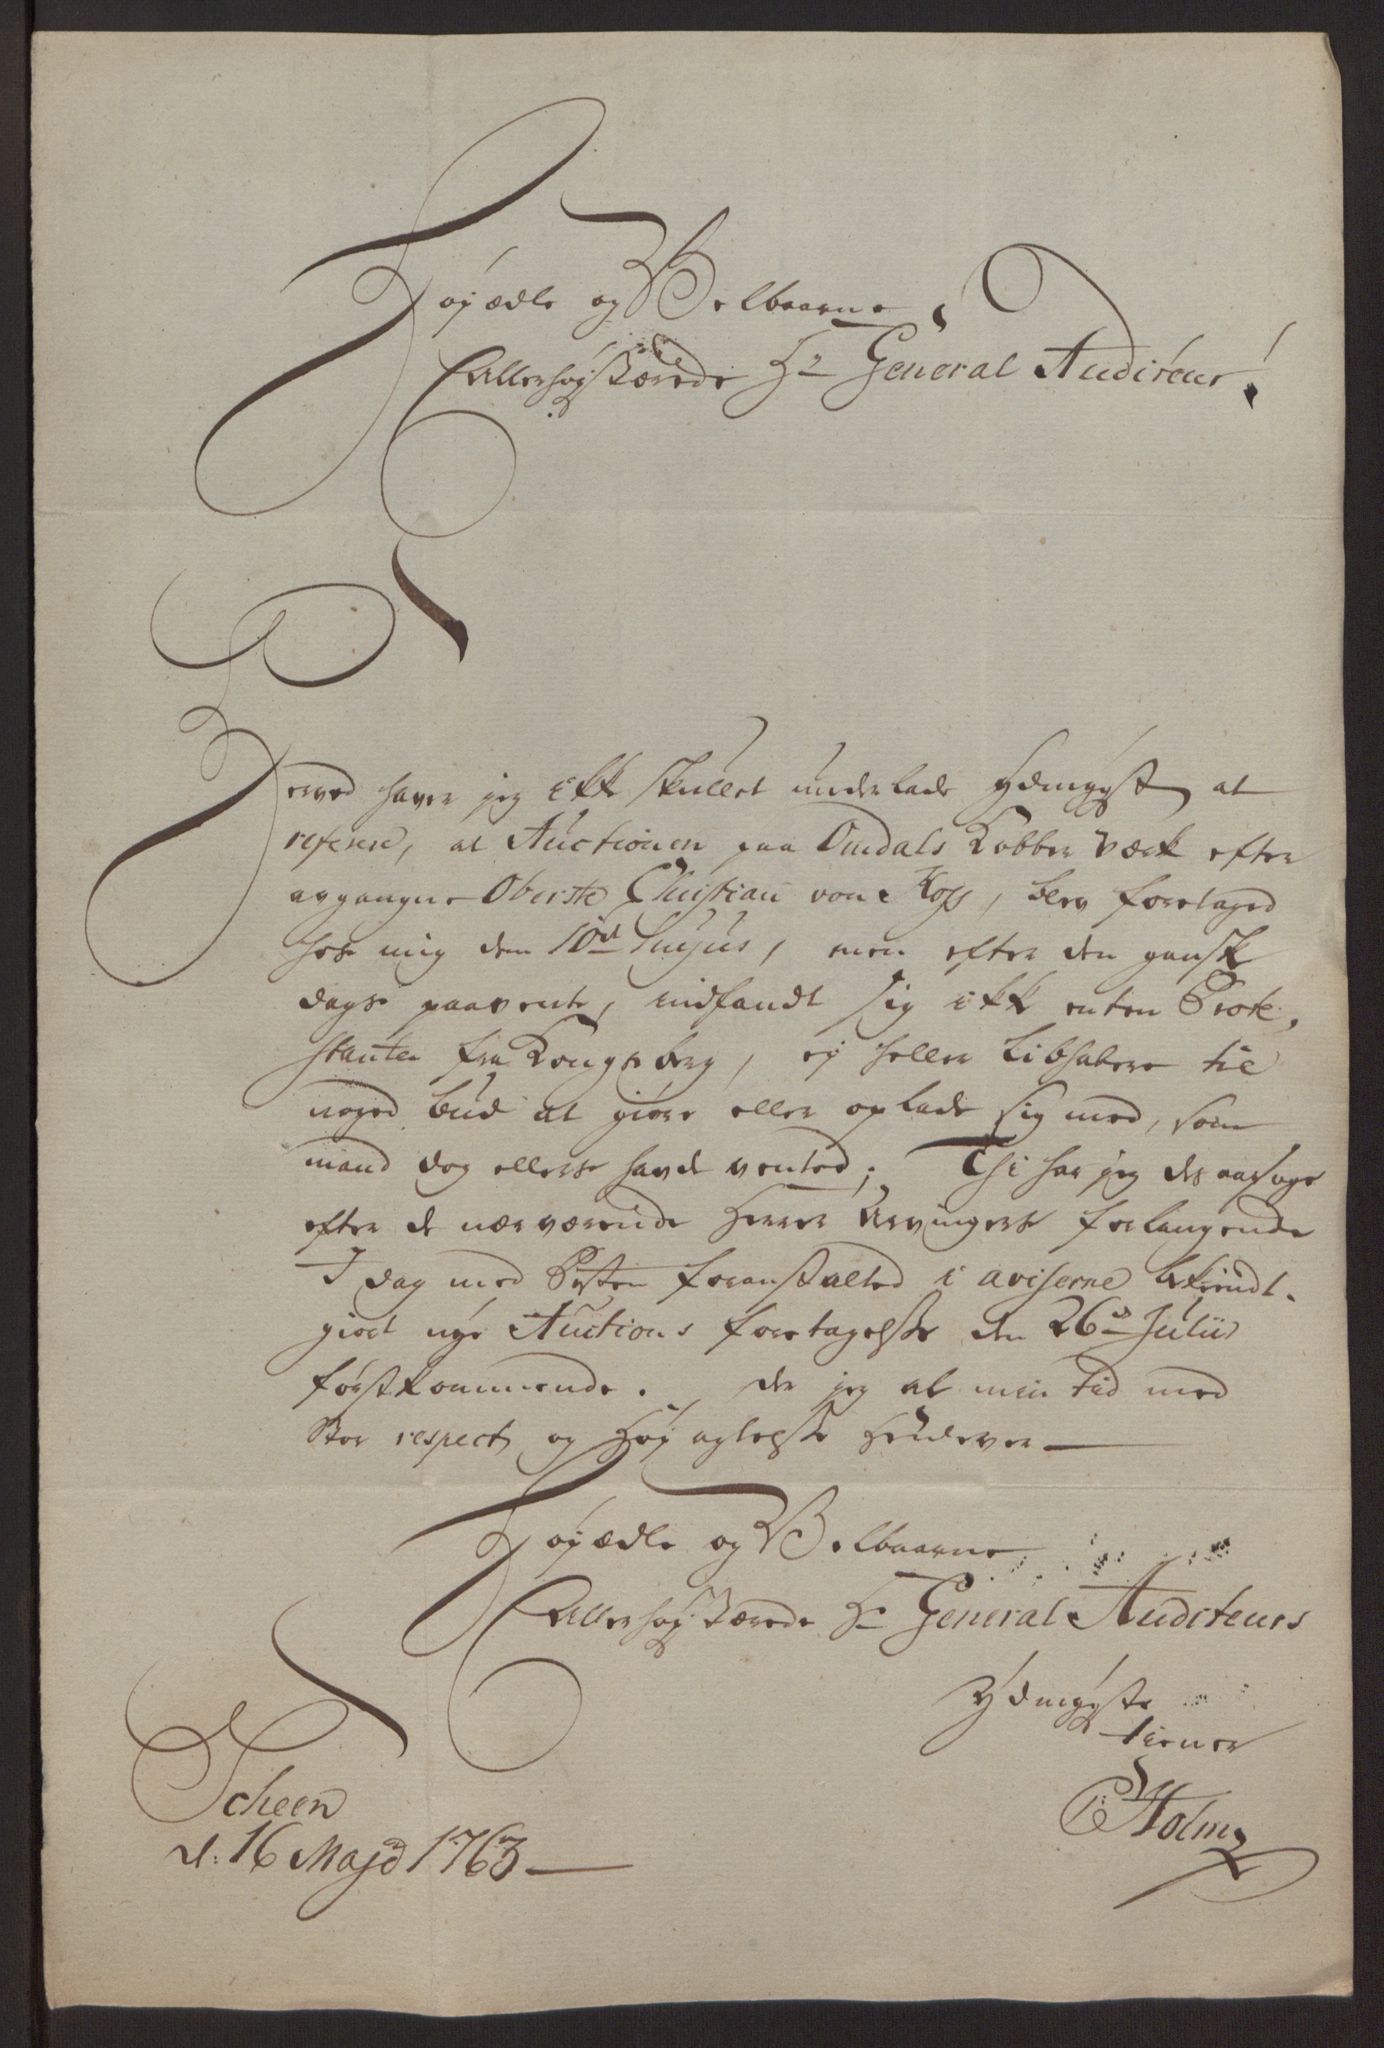 Høyædle og Velbaarne,
Allerhøystærede Hr General Auditeur!
Herved haver jeg ikke skullet underlade ydmygst at
referere, at Auctionen paa Omdals Kobber Værk efter
afgangne Oberste Christian von Koss, blev foretaged
hos mig den 10de hujus, men efter den gansk
dags paavente, indfandt sig ikke enten Prote-
stanter fra Kongsberg, ej heller Libhabere til
noged bud at giøre eller oplade sig med, som
mand dog ellers havde vented; Thi har jeg des aarsage
efter de nærværende Herrer Arvingers forlangende
I dag med Posten foranstalted i aviserne bekiendt-
giort nye Auctions foretagelse den 26de Julii
førstkommende. der jeg al min tid med
Stor respect og Høy agtelse Henlever
Høyædle og Velbaarne
Allerhøystærede Hr General Auditeurs
Ydmygste
tiener
Holm
Scheen
d: 16 Maji 1763